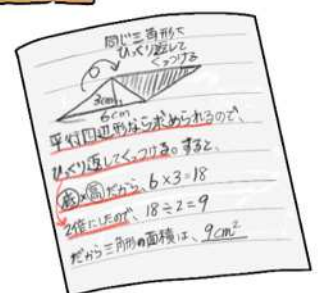 同じ三角形を
ひっくり返して
くっつける
3cm
6cm
平行四辺形なら求められるので、
ひっくり返してくっつける。すると、
底×高だから、6×3=18
2倍にしたので、18÷2=9
だから三角形の面積は、9cm²